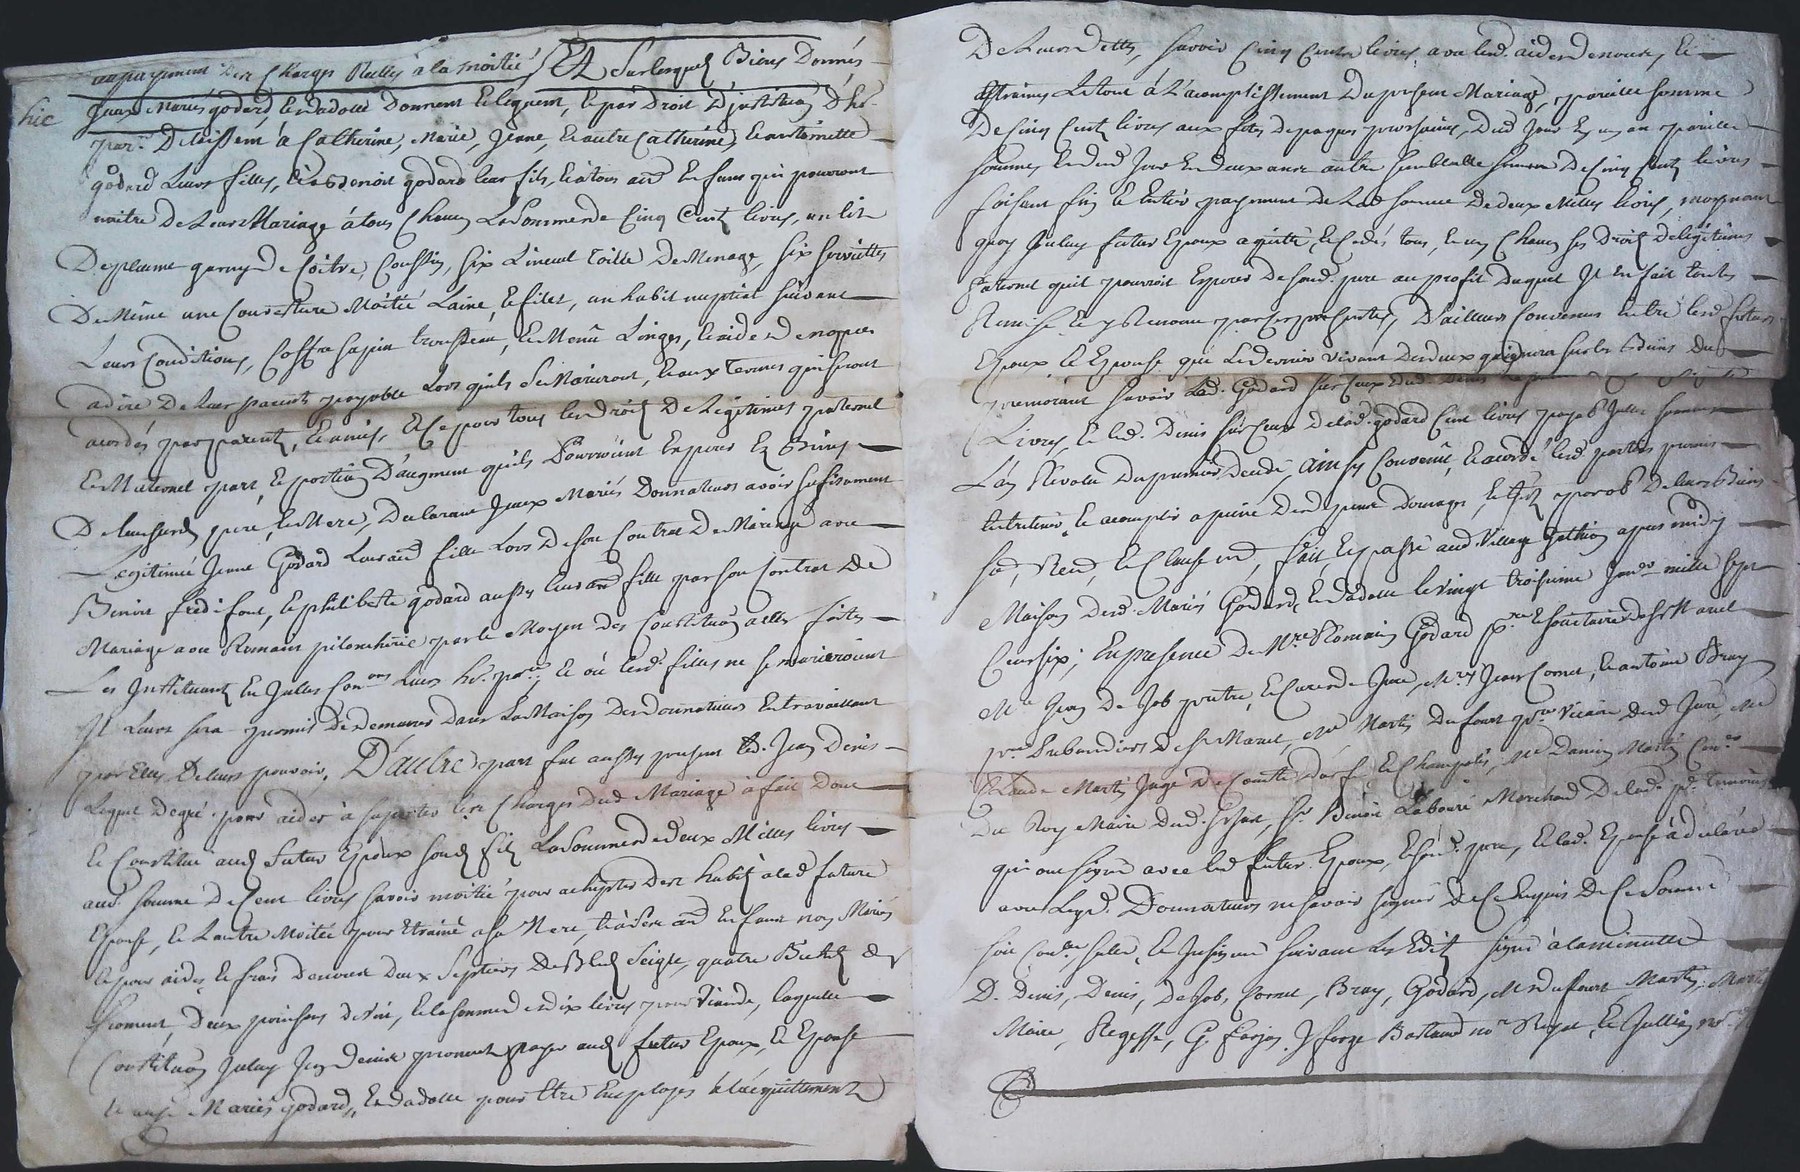 au payement des Charges Reelles à la moitié, Et Surlesquels Biens Donnés
hic
Iceux Mariés godard, et Dadolle Donnent et leguent, et par Droit D'jnstitution d'he.
par.re Delaissent à Catherine, Marie, Jenne, et autre Catherine, et antoinette
godard Leurs filles, et à Benoit godard leur fils, et à tous aud Enfans qui pourront
naitre de Leur Mariage à tous Chacun La Somme de Cinq Cent livres, un lit
De plume garny de Coitre, Coussin, Six Linceul toille De Menage, Six serviettes
De Même une Couverture Moitié Laine, et filet, un habit nuptial suivant
Leurs Conditions, Coffre sapin trousseau, et Menû Linges, et aide de nopces
a dire de leur parents payable Lors quils Se Mariront, et aux Termes qui seront
acordés par parents, et amis, Et Ce pour tous les Droits De Legitimes paternel
et Maternel part, et portion D'augment quils Pourroient Esperer Es Biens
De leursd. pere, et Mere, Declarant Iceux Mariés Donnateurs avoir suffisament
Legitimé Jenne Godard Leur fille Lors De son Contrat De Mariage avec
Benoit fredifont, et philiberte godard aussy leur fille par son Contrat De
Mariage avec Romain pilonchery par le Moyen des Constitution a elles faites
Les Instituant En Jcelles leurs he. par.re, et où lesd. filles ne se marieroient
Il Leurs sera permis De demeurer Dans La Maison Desd Donnateurs En travaillant
pour Elles De leurs pouvoir, D'autre part fut aussy present led. Jean Denis
Lequel De gré pour aider à suporter les Charges Dud Mariage à fait Don
et Constitué aud futur Epoux sond fils La Somme de deux Milles livres
aud. somme De Cent livres savoir moitié pour achepter Des habits a lad future
Epouse, et Lautre Moitié pour Etraine a Sa Mere, et à Ses Enfans non Mariés
et pour aider et frais de Deux Septiers De Bled Seigle, quatre Bichets de
froment, Deux poinsons de vin, et la somme de dix livres pour Viande, laquelle
Constitution Iceluy Jean Denis promet payer aud futur Epoux, et Epouse
et Mariés godard, et Dadolle pour Etre Employés à Lacquittement
De Leurs Dettes, savoir Cinq Cents livres et
Etraines Le tout à L'acomplissement Du present Mariage, pareille somme
De Cinq Cents livres aux fetes de paques prochaines, Dud Jour En un an pareille
somme, et Dud Jour En Deux ans autre semblable somme De Cinq Cents livres
faisant fin et Entier payement de Lad somme De deux Milles livres, moyenant
quoy Iceluy futur Epoux a quitté, et Cedés tous, et un Chacun ses Droits de legitimes
paternel quil pourroit Esperer de sond. pere au profit Duquel Il En fait toutes
Remise, et y Renonce par Ces presentes, D'ailleurs Convenus Entre lesd. futurs
Epoux, et Epouse que Le Dernier vivant Des deux gaignera sur les Biens du
premourant savoir Lad. Godard sur Ceux dud. Denis
Livres, et led. Denis sur Ceux De lad. godard Cent livres payab Icelles sommes
L'an Revolu Du premier Decedé, ainsy Convenû, et acordé lesd parties promis
Entretenir, et acomplir a peine Desd pens Domages, et Int. par ob. De leurs Biens
Renô, et Clause, fait, et passé aud Village apres midy
Maison Desd. Mariés Godard, et Dadolle Le Vingt troisieme Janv. mille sept
Cent six; En presence De M.re Romain Godard p.re et societaire de St Marcel
M.re Jean De Job pretre, et Curé de Juré, M.re Jean Cornet, et antoine Bray
p.res Prebendiers De St Marcel, M.re Martin Dufour p.re Vicaire Dud Juré, M.e
Claude Martin Juge De Comté et Champolis, M.e Damien Martin Con.er
Du Roy Maire Dud. St Just, Sr. Benoit Labouré Marchand De lad. p.se temoins
qui ont signé avec led futur Epoux, et sond. pere, et lad. Epouse à declaré
avec Lesd. Donnateurs ne savoir signer De Ce Enquis De Ce Sommé
soit Con.lé scellé, et Insinué suivant Les Edits signé à la minutte
D. Denis, Denis, De Job, Cornet, Bray, Godard, M. Dufour Martin, Martin
Maire, Regeffe, G. farjon, J forge Bertaud no.re Royal, et Jullien no.re R